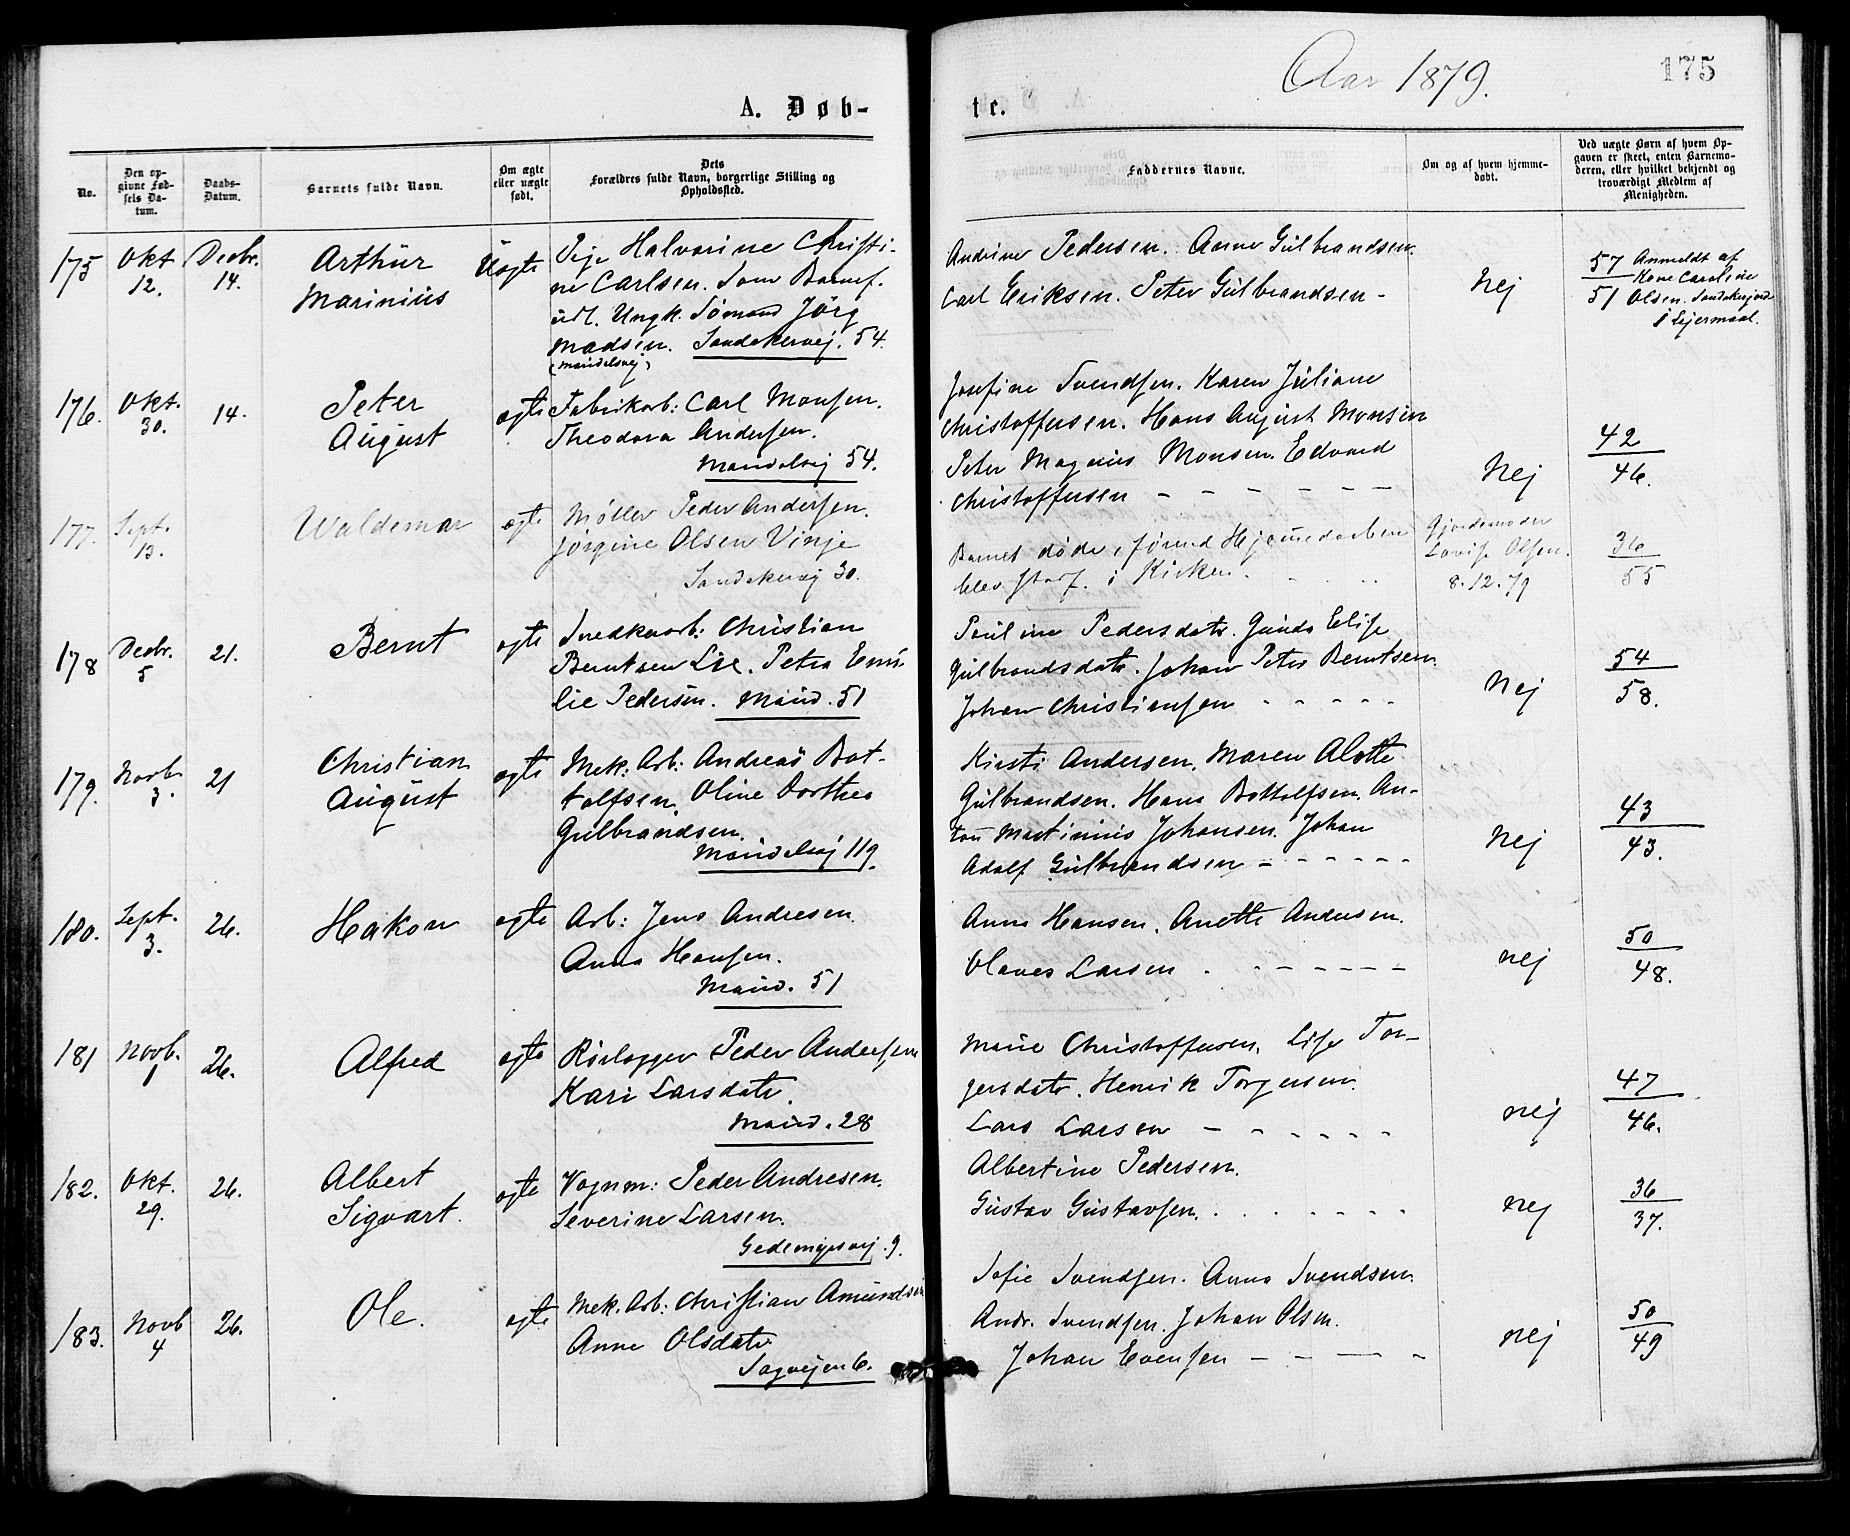 Aar 1879.
175
A. Døb-
te.
No.
Den op-
givne Fød-
sels Da-
tum.
Daabs-
Datum.
Barnets fulde Navn.
Om ægte
eller uægte
født.
Dets
Forældres fulde Navn, borgerlige Stilling og
Opholdssted.
Faddernes Navne.
Om og af hvem hjemme-
døbt.
Ved uægte Børn af hvem Op-
gaven er skeet, enten Barnemo-
deren, eller hvilket bekjendt og
troværdigt Medlem af
Menigheden.
175
Okt
12.
Decbr.
14.
Arthur
Marinius
Uægte
Pige Halvarine Christi-
ne Carlsen. Som Barnef.
udl. Ungk. Sømand Jörg
Madsen. Sandakervej. 54.
(Maridalsvej)
Andrine Pedersen. Anne Gulbrandsen.
Carl Eriksen. Peter Gulbrandsen -
Nej
57
51
Anmeldt af
Kone Caroline
Olsen. Sandakervej
i Lejermaal.
176.
Okt.
30.
14.
Peter
August
ægte
Fabrikarb: Carl Monsen.
Theodora Andersen.
Maridalsvej 54.
Josefine Svendsen. Karen Juliane
Christoffersen. Hans August Monsen
Peter Magnus Monsen. Edvard
Christoffersen - - - - - -
Nej
42
46.
177.
Sept.
13.
Waldemar
ægte
Møller Peder Andersen.
Jørgine Olsen Vinje
Sandakervej 30.
Barnet døde, førend Hjemmedaaben
blev stadf. i Kirken.
Gjordemoder
Lovise Olsen.
8.12.79
36
55
178
Decbr.
5
21.
Bernt
ægte
Snedkerarb: Christian
Berntsen Lie. Petra Emi-
lie Pedersen. Marid. 51
Pauline Pedersdatr. Gunda Elise
Gulbrandsdatr. Johan Peter Berntsen.
Johan Christiansen - - - - -
Nej
54
58.
179.
Novb
3.
21
Christian
August
ægte
Mek: Arb: Andreas Bot-
tolfsen. Oline Dorthea
Gulbrandsen.
Maridalsvej 119.
Kirsti Andersen. Maren Alette
Gulbrandsen. Hans Bottolfsen. An-
ton Martinius Johansen. Johan
Adolf Gulbrandsen - - - - - -
Nej
43
43.
180.
Sept.
3.
26.
Hakon
ægte
Arb: Jens Andresen
Anna Hansen.
Marid. 51
Anna Hansen. Anette Andersen.
Olaves Larsen . - - - - - -
nej
50
48.
181
Novb.
1
26.
Alfred
ægte
Rörlægger Peder Andersen
Kari Larsdatr.
Marid. 28
Marie Christoffersen. Lise Tor-
gersdatr. Henrik Torgersen.
Lars Larsen - - - - - -
nej
47
46.
182.
Okt.
29.
26.
Albert
Sigvart.
ægte
Vognm: Peder Andresen.
Severine Larsen.
Gedemyrsvej. 9.
Albertine Pedersen.
Gustav Gustavsen. . . . . . . .
nej
36
37.
183.
Novb
4
26.
Ole.
ægte
Mek. Arb: Christian Amundsen
Anne Olsdatr
Sagvejen 6.
Sofie Svendsen. Anna Svendsen.
Andr. Svendsen. Johan Olsen.
Johan Evensen - - - - -
nej
50
49